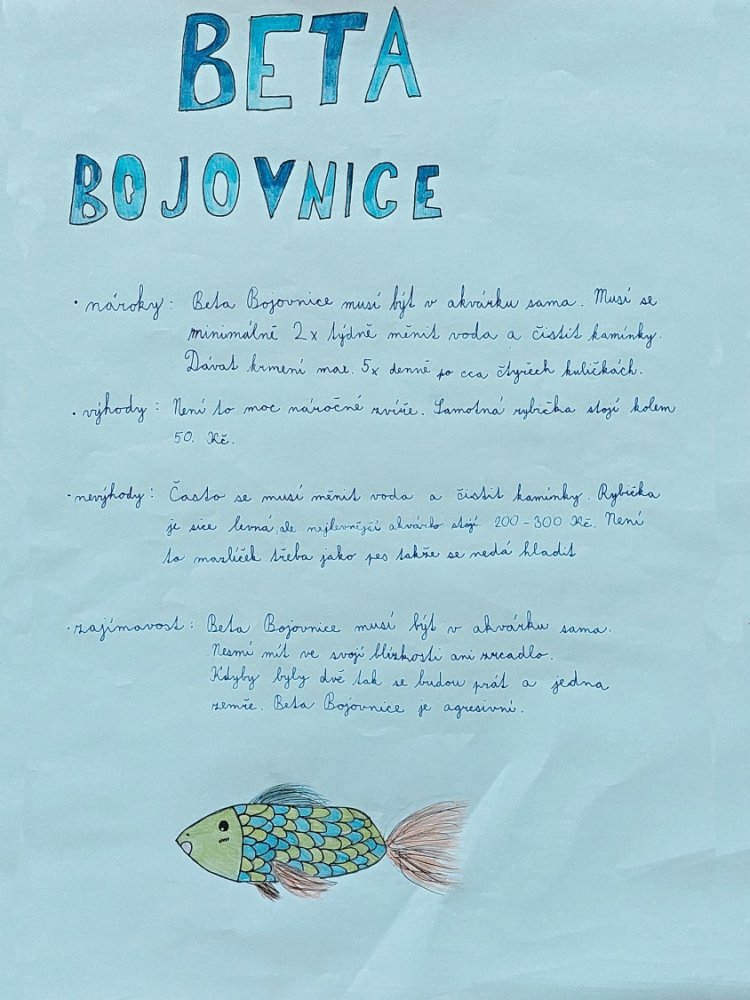 BETA
BOJOVNICE
• nároky: Beta Bojovnice musí být v akvárku sama. Musí se
minimálně 2x týdně měnit voda a čistit kamínky.
Dávat krmení max. 5x denně po cca čtyřech kuličkách.
• výhody: Není to moc náročné zvíře. Samotná rybička stojí kolem
50. Kč.
• nevýhody: Často se musí měnit voda a čistit kamínky. Rybička
je sice levná, ale nejlevnější akvárko stojí 200-300 Kč. Není
to mazlíček třeba jako pes takže se nedá hladit
• zajímavost: Beta Bojovnice musí být v akvárku sama.
Nesmí mít ve svojí blízkosti ani zrcadlo.
Kdyby byly dvě tak se budou prát a jedna
zemře. Beta Bojovnice je agresivní.